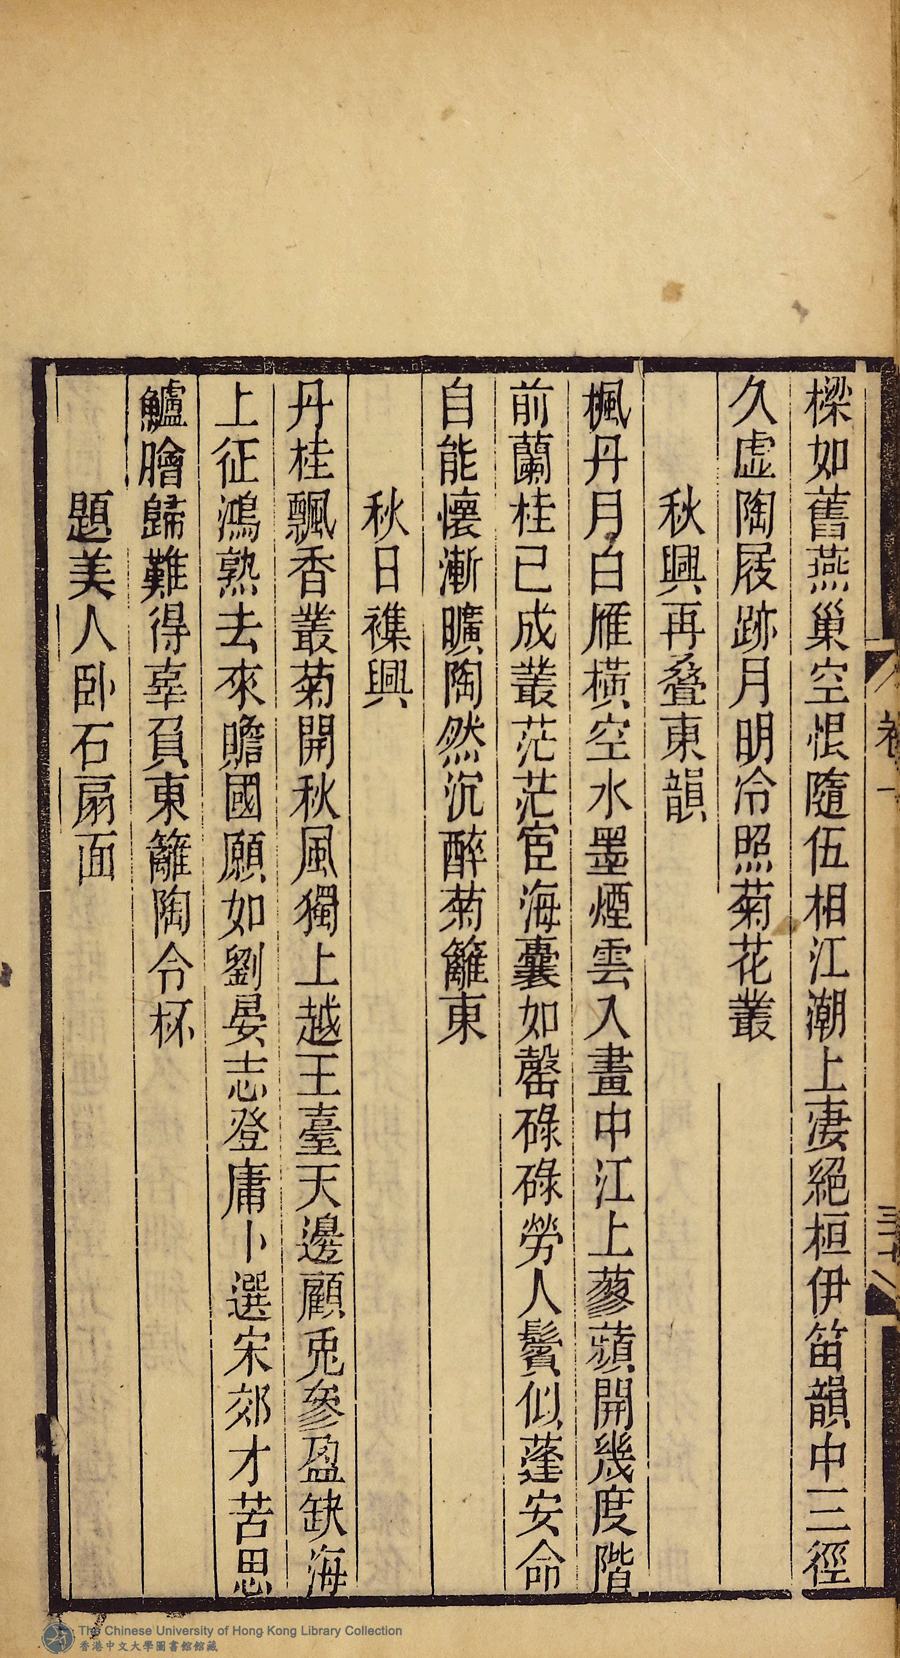 樑如舊燕巢空恨隨伍相江潮上淒絕桓伊笛韻中三徑
久虛陶屐跡月明冷照菊花叢
秋興再叠東韻
楓丹月白雁橫空水墨煙雲入畫中江上蓼蘋開幾度階
前蘭桂已成叢茫茫宦海囊如罄碌碌勞人鬢似蓬安命
自能懷漸曠陶然沉醉菊籬東
秋日襍興
丹桂飄香叢菊開秋風獨上越王臺天邊顧兎參盈缺海
上征鴻熟去來贍國願如劉晏志登庸卜選宋郊才苦思
鱸膾歸難得辜負東籬陶令杯
題美人卧石扇面
The Chinese University of Hong Kong Library Collection
香港中文大學圖書館館藏